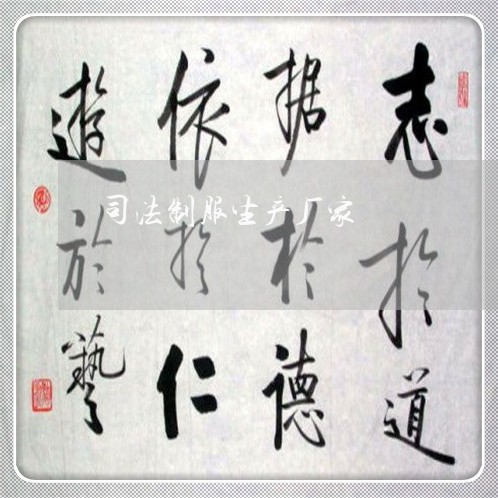 志於道
据於德
依於仁
遊於藝
司法制服生产厂家